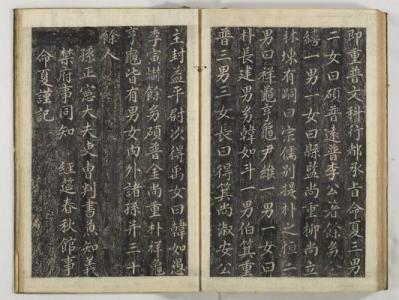 即重普文科行都承旨命夏三男
二女曰碩普遠普李公普餘幼
一男一女曰縣監尚重柳尚立
有嗣曰宗儒別提朴之恒二
男曰祥龜亨龜尹維一男一女曰
朴長建男男韓如斗一男伯箕重
普三男三女長曰得箕尚淑安公
主封益平尉次得禹女曰韓如愚
李寅餘幼碩普金尚重朴祥龜
亨龜皆有男女內外諸孫并三十
餘人
孫正憲大夫吏曹判書兼知義
禁府事同知 經筵春秋館事
命夏謹記